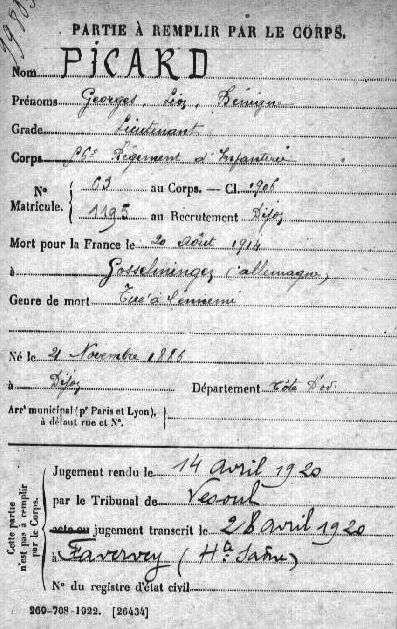 PARTIE À REMPLIR PAR LE CORPS.
Nom PICARD
Prénoms Georges, Léon, Bénigne
Grade Lieutenant
Corps Régiment d'Infanterie
N° Matricule. { 03 au Corps. — Cl. 1906
1195 au Recrutement Dijon
Mort pour la France le 20 Août 1914
à Gosselmingen (allemagne)
Genre de mort Tué à l'ennemi
Né le 21 Novembre 1886
à Dijon Département Côte D'or
Arrt municipal (pr Paris et Lyon),
à défaut rue et N°.
Cette partie n'est pas à remplir par le Corps.
Jugement rendu le 14 avril 1920
par le Tribunal de Vesoul
acte ou jugement transcrit le 28 avril 1920
à Faverney (Hte Saône)
N° du registre d'état civil
260-708-1922. [26434]